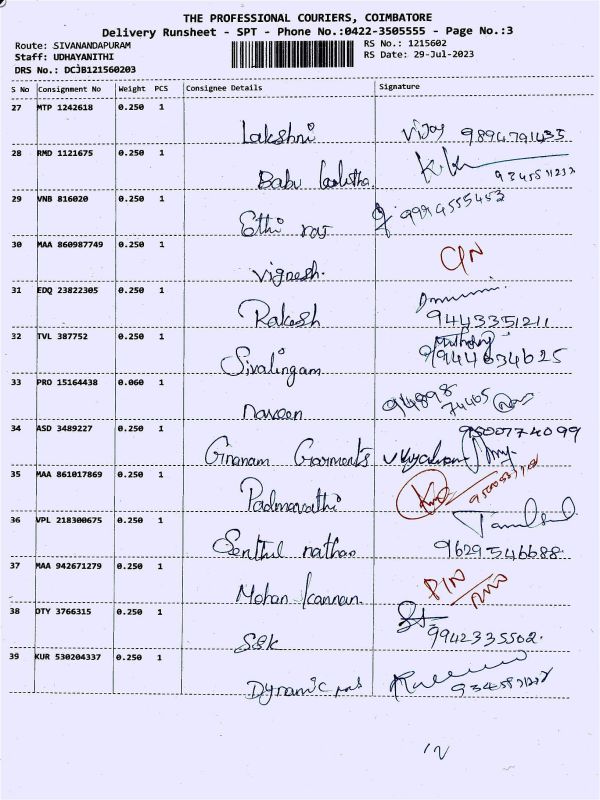 THE PROFESSIONAL COURIERS, COIMBATORE
Delivery Runsheet - SPT - Phone No.:0422-3505555 - Page No.:3
Route: SIVANANDAPURAM
Staff: UDHAYANITHI
DRS No.: DCJB121560203
RS No.: 1215602
RS Date: 29-Jul-2023
S No Consignment No Weight PCS Consignee Details Signature
27 MTP 1242618 0.250 1
Lakshmi Vijay 9894791435
28 RMD 1121675 0.250 1
Babu
29 VNB 816020 0.250 1
Ethi raj 9994555453
30 MAA 860987749 0.250 1
Vignesh.
31 EDQ 23822305 0.250 1
Rakesh 9443351211
32 TVL 387752 0.250 1
Sivalingam 9444634625
33 PRO 15164438 0.060 1
naveen 94898 74465
34 ASD 3489227 0.250 1
Gnanam Garments 9500774099
35 MAA 861017869 0.250 1
Padmavathi
36 VPL 218300675 0.250 1
Senthil nathan 9629546688.
37 MAA 942671279 0.250 1
Mohan kannan. PIN
38 DTY 3766315 0.250 1
S&K 9942335502.
39 KUR 530204337 0.250 1
Dynamic